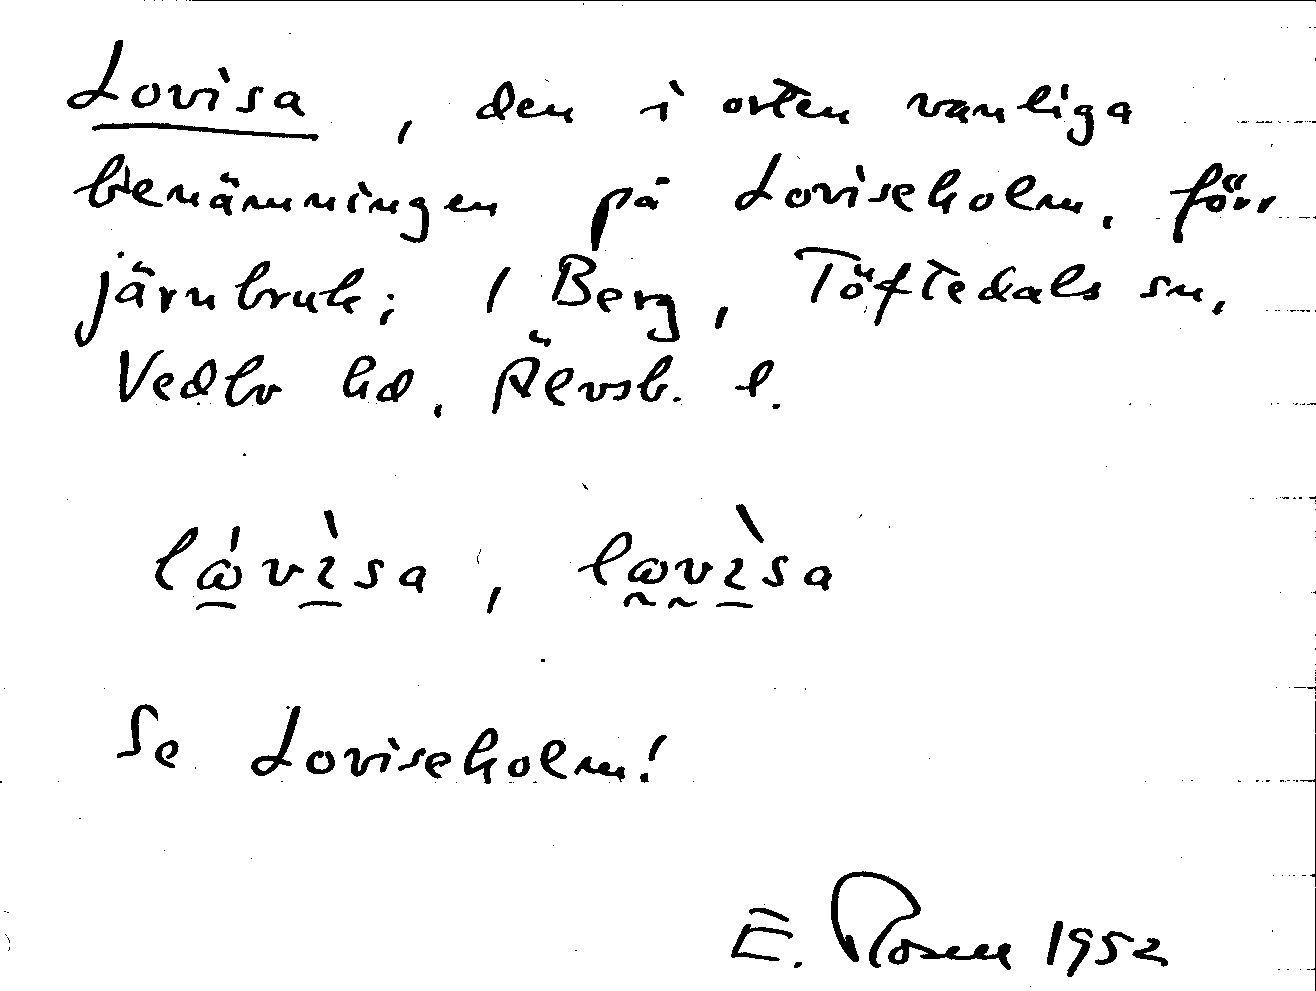 Lovisa, den i orten vanliga
benämningen på Loviseholm, förr
järnbruk; i Berg, Töftedals sn,
Vedbo hd, Älvsb. l.
lɷ́vìsa, lɷvìsa
Se Loviseholm!
E. Rosen 1952